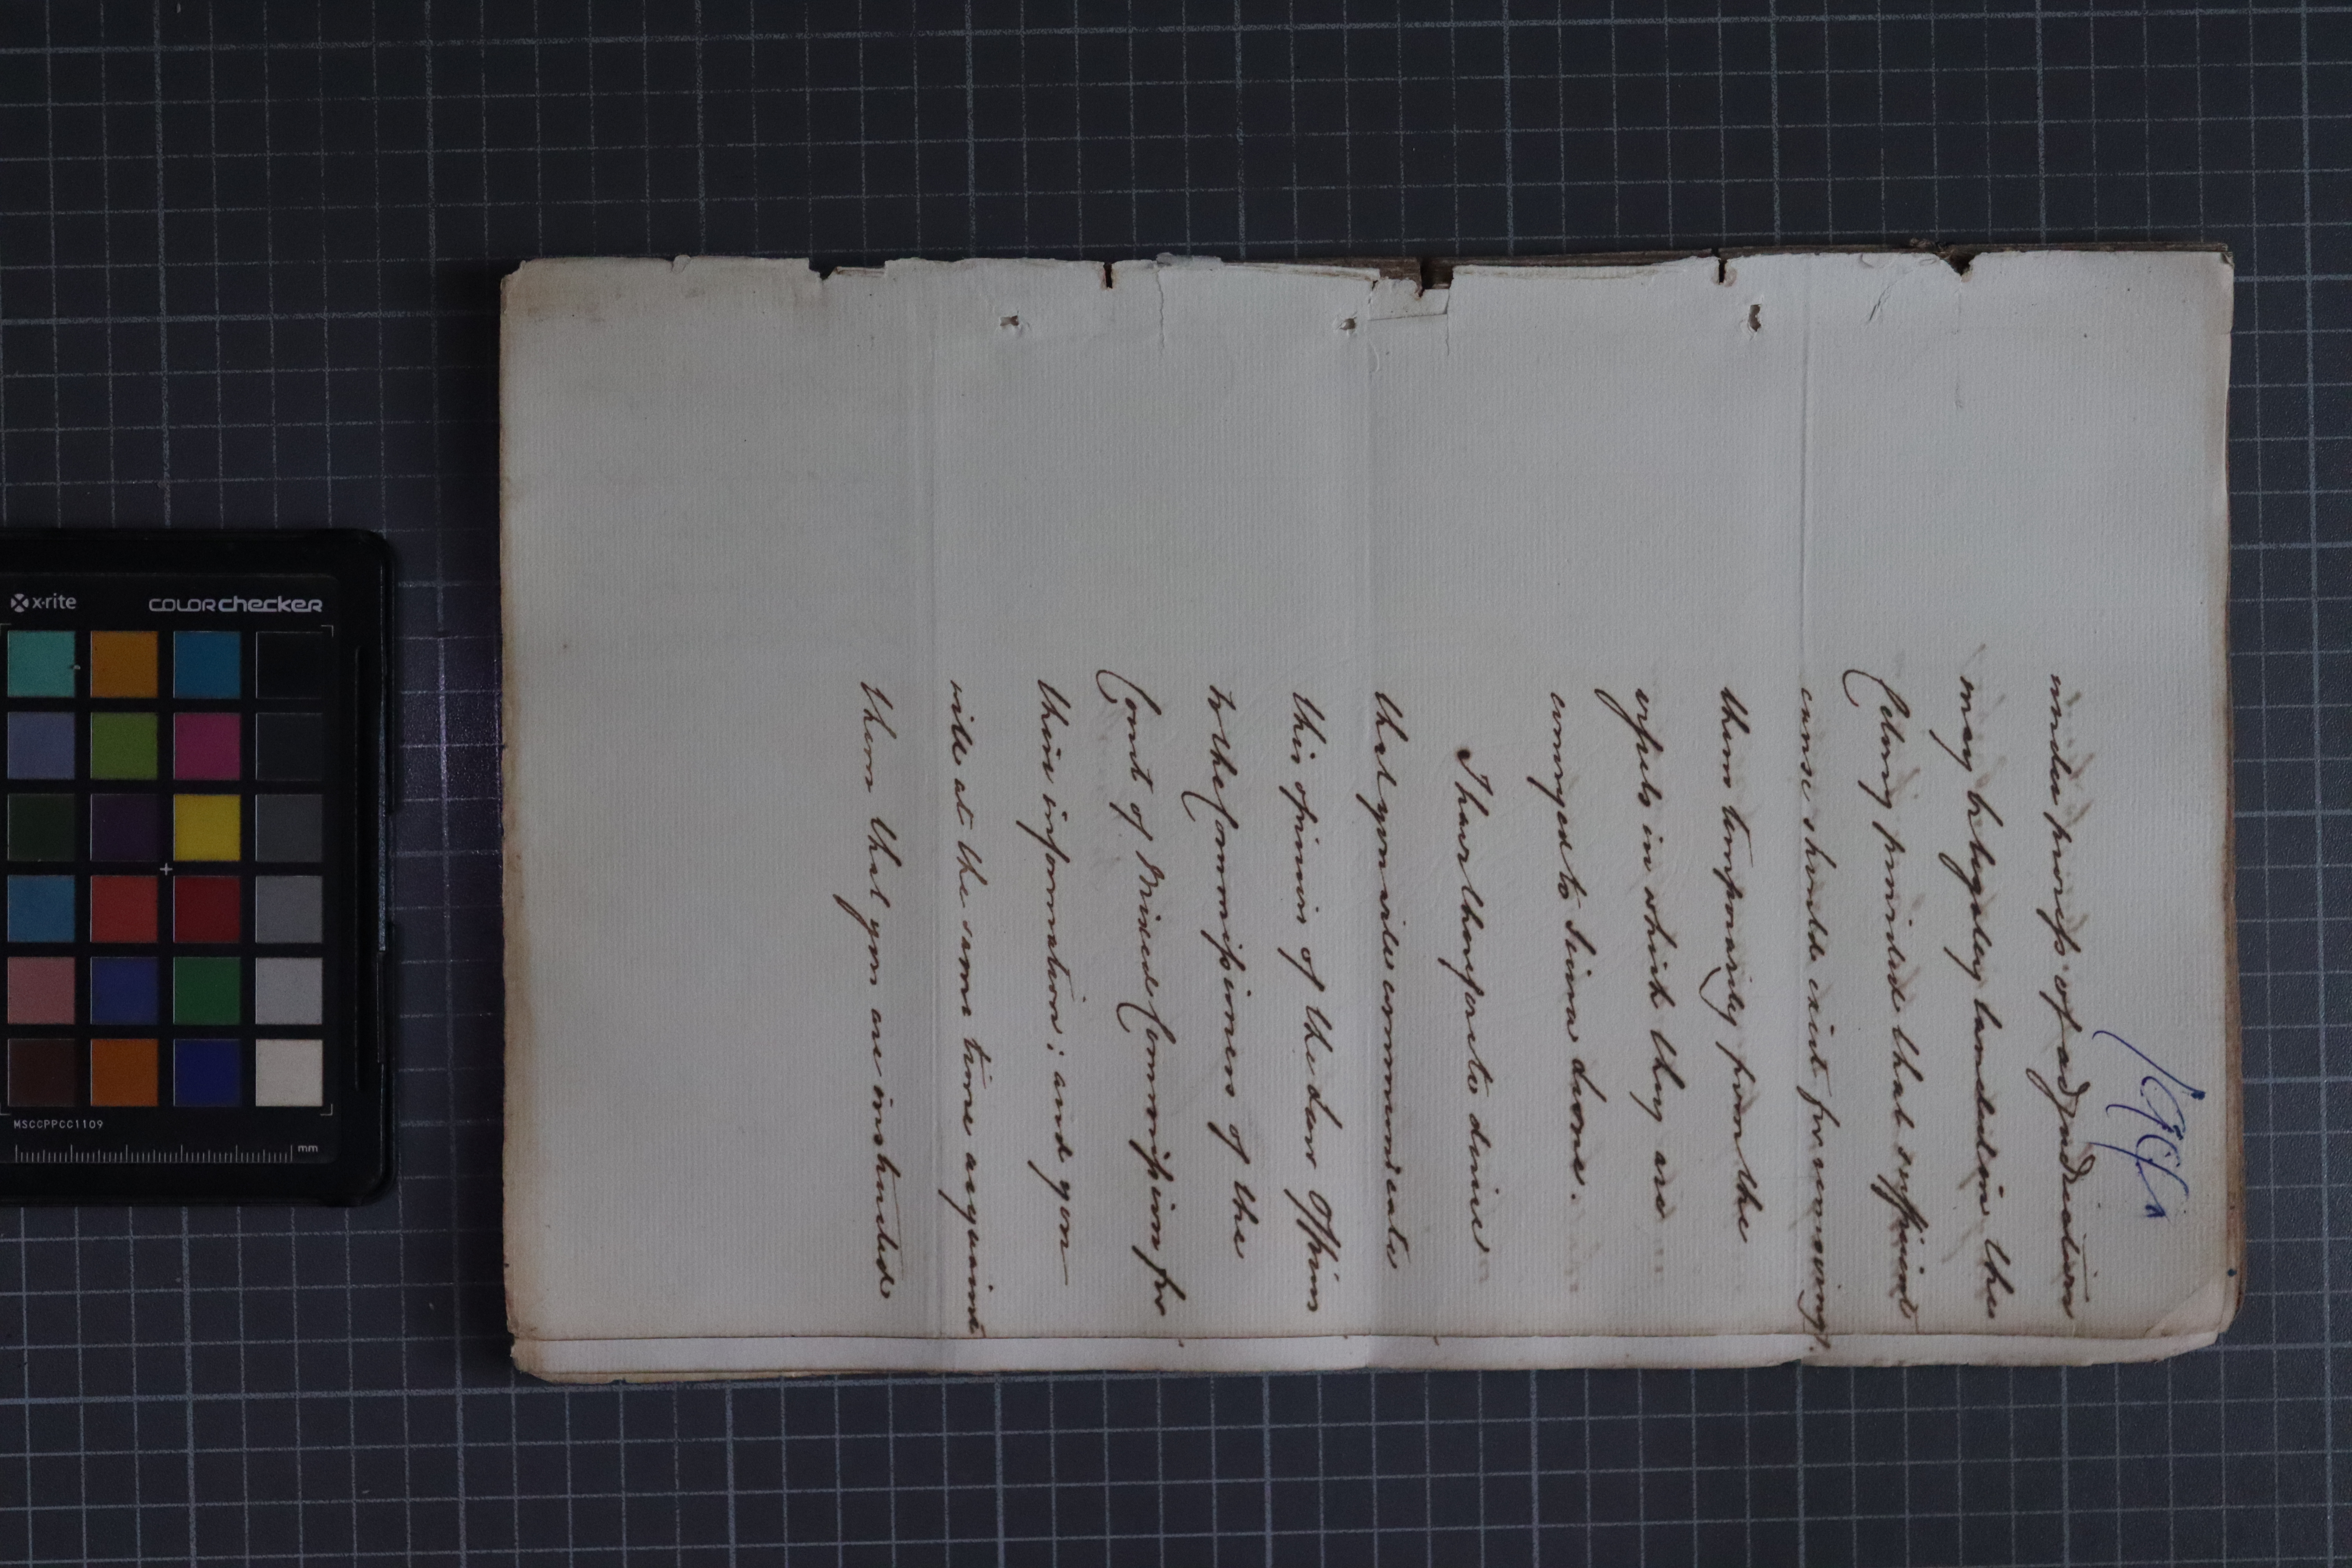 under process of adjudication
may be legally landed in the
Colony provided that sufficient
cause should exist for removing
them temporarily from the
vessels in which they are
conveyed to Sierra Leone.
I have therefore to desire
that you will communicate
this opinion of the Law Officers
to the Commissioners of the
Court of Mixed Commission for
their information; and you
will at the same time acquaint
them that you are instructed
x·rite
COLORchecker
MSCCPPCC1109
mm